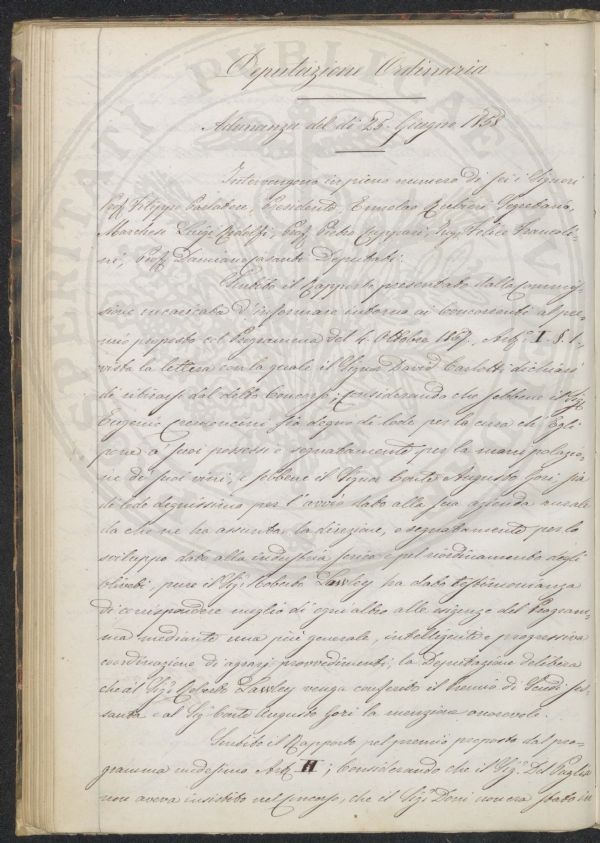 Deputazione Ordinaria
Adunanza del dì 25 Giugno 1858
Intervengono in pieno numero di sei i Signori
Prof. Filippo Parlatore, Presidente, Ermolao Rubieri Segretario,
Marchese Luigi Ridolfi, Prof. Pietro Cuppari, Ing. Felice Francoli-
ni, Prof. Damiano Casanti Deputati.
Sentito il Rapporto presentato dalla Commis-
sione incaricata d'informare intorno ai concorrenti al pre-
mio proposto col Programma del 4 Ottobre 1857. Art. I § 1-
vista la lettera con la quale il Signor David Carlotti dichiara
di ritirarsi dal detto Concorso; Considerando che sebbene il Sig.
Eugenio Cremoncini sia degno di lode per la cura che Egli
pone a suoi possessi e segnatamente per la manipolazio-
ne dei suoi vini, e sebbene il Signor Conte Augusto Gori sia
di lode degnissimo per l'avvio dato alla sua azienda rurale
da che ne ha assunta la direzione, e segnatamente per lo
sviluppo dato alla industria serica e pel riordinamento degli
oliveti, pure il Sig. Roberto Lawley ha dato testimonianza
di corrispondere meglio di ogni altro alle esigenze del Program-
ma mediante una più generale, intelligente e progressiva
coordinazione di agrari provvedimenti; la Deputazione delibera
che al Sig. Roberto Lawley venga conferito il Premio di Scudi ses-
santa e al Sig. Conte Augusto Gori la menzione onorevole.
Sentito il Rapporto pel premio proposto dal pro-
gramma medesimo Art. II; Considerando che il Sig. Del Puglia
non aveva insistito nel concorso, che il Sig. Doni non era stato in